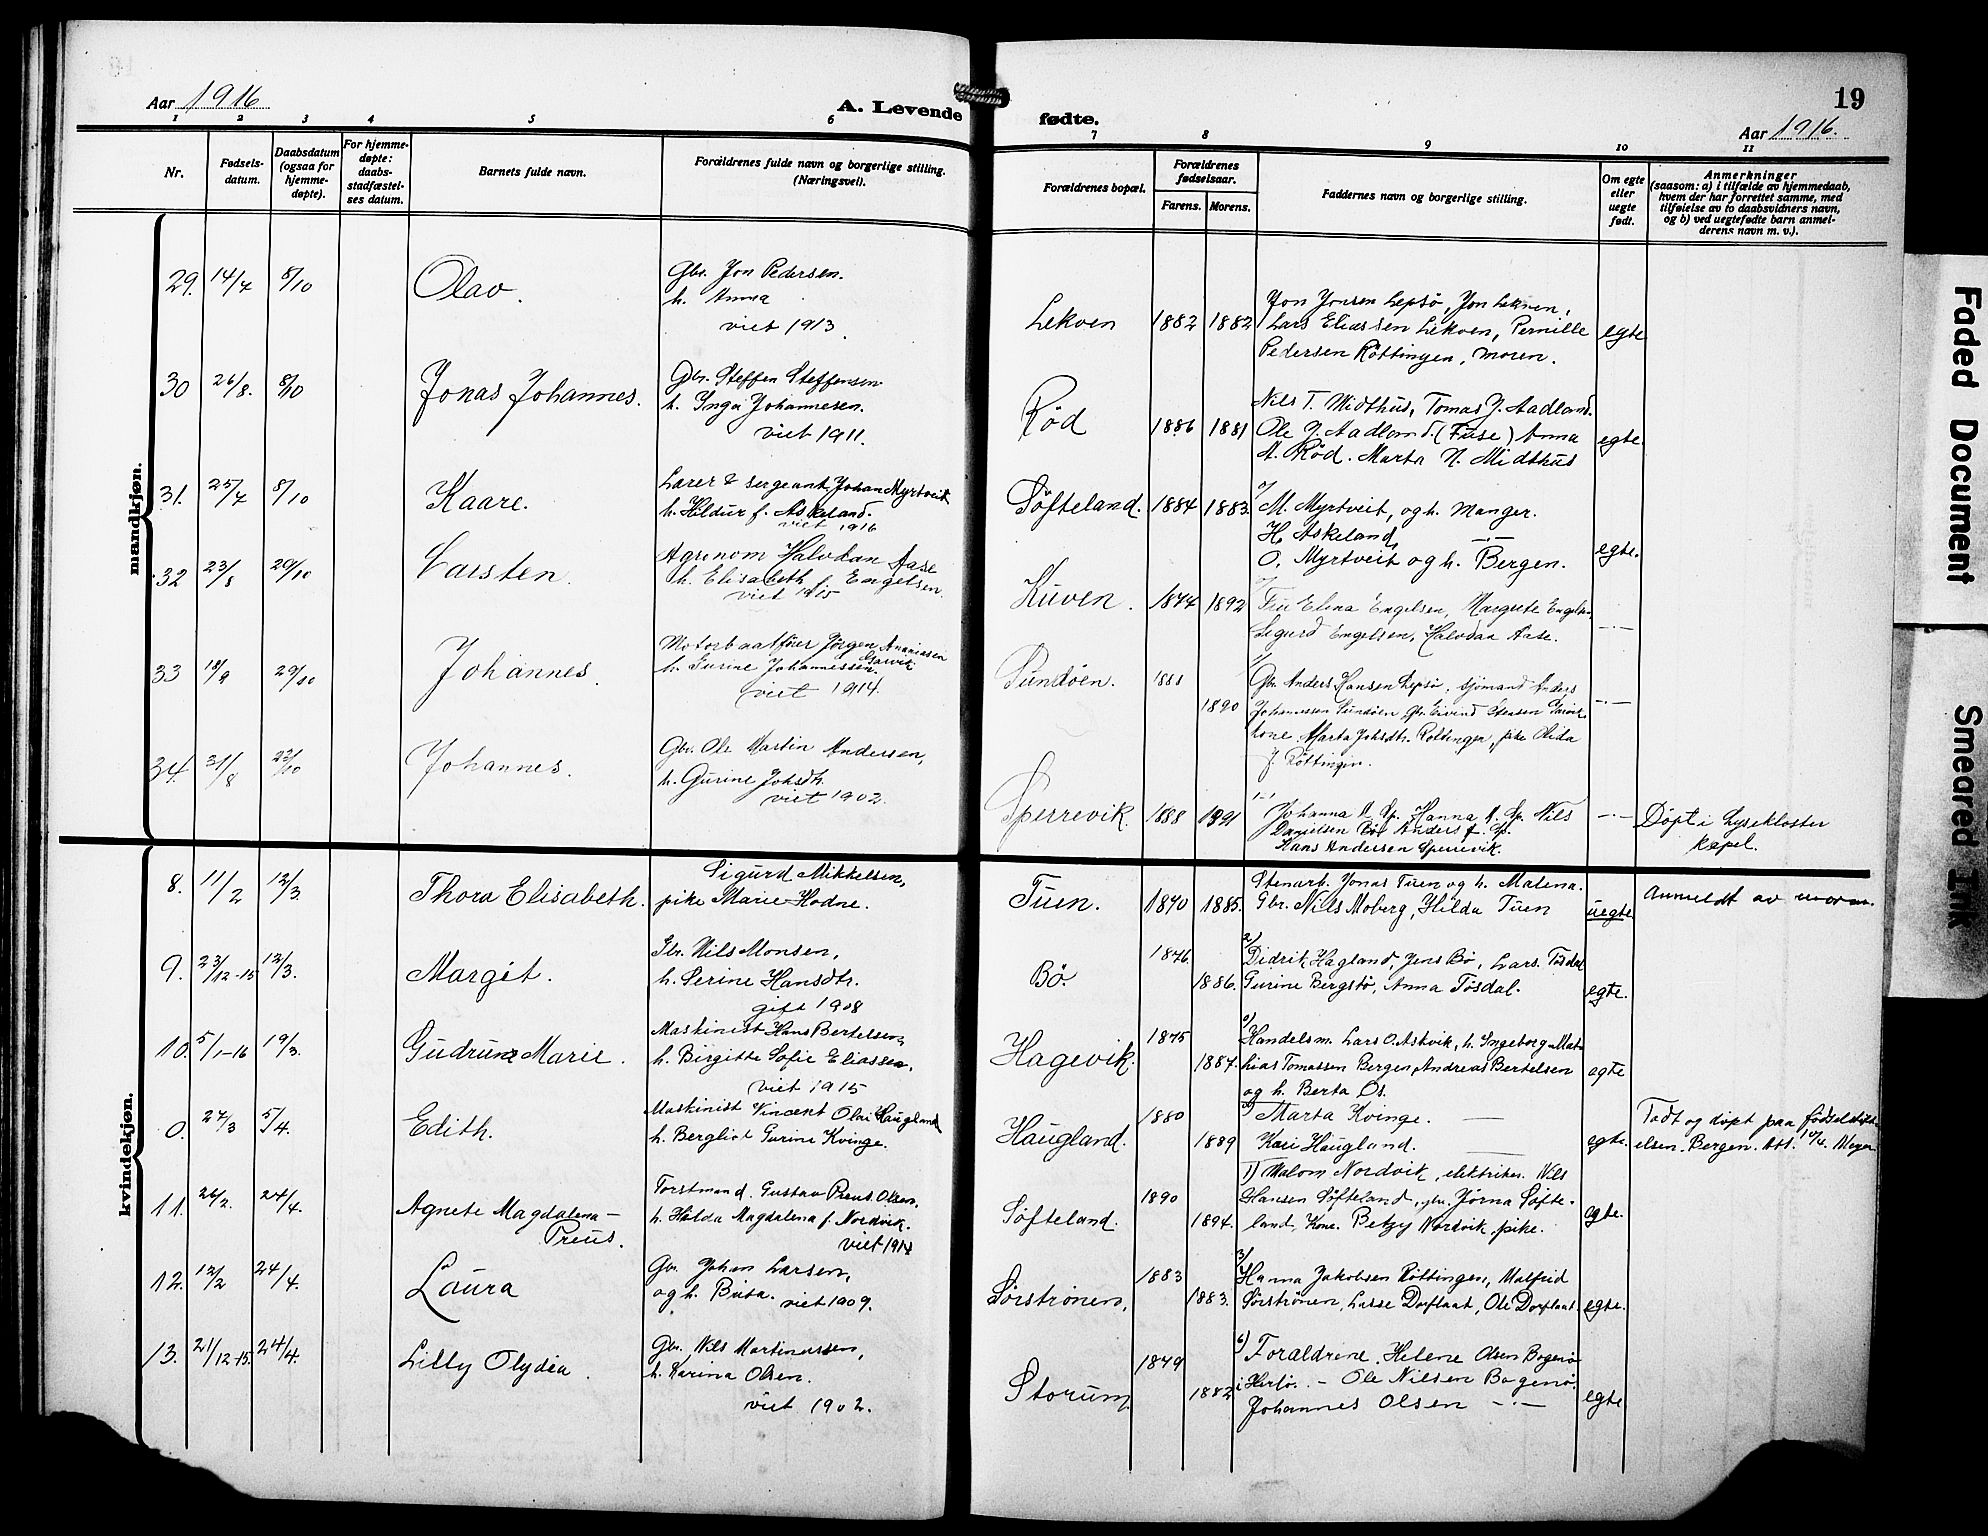 Aar 1916
A. Levende
fødte.
19
Aar 1916.
1 2 3 4 5 6
7 8 9 10 11
Nr.
Fødsels-
datum.
Daabsdatum
(ogsaa for
hjemme-
døpte).
For hjemme-
døpte:
daabs-
stadfæstel-
ses datum.
Barnets fulde navn.
Forældrenes fulde navn og borgerlige stilling.
(Næringsvei).
Forældrenes bopæl.
Forældrenes
fødselsaar.
Farens. Morens.
Faddernes navn og borgerlige stilling.
Om egte
eller
uegte
født.
Anmerkninger
(saasom: a) i tilfælde av hjemmedaab,
hvem der har forrettet samme, med
tilføielse av to daabsvidners navn,
og b) ved uegtefødte barn anmel-
derens navn m. v.).
mandkjøn.
29. 14/7 8/10 Olav.
Gbr. Jon Pedersen.
h. Anna
viet 1913.
Lekven 1882 1882
Jon Jonsen Lepsö, Jon Lekven,
Lars Eliassen Lekven, Pernille
Pedersen Röttingen, moren.
egte
30 26/8. 8/10 Jonas Johannes.
Gbr. Steffen Steffensen
h. Inga Johannesen.
viet 1911.
Rød 1886 1881
Nils T. Midthus, Tomas J. Aadland.
Ole J. Aadland. (Fuse) Anna
A. Rød. Marta N. Midthus
egte.
31. 25/7 8/10 Kaare.
Lærer & sergeant Johan Myrtveit
h. Hildur f. Askeland.
viet 1916
Söfteland. 1884 1883.
M. Myrtveit, og h. Manger.
H. Askeland,
O. Myrtveit og h. Bergen.
egte.
32 23/8 29/10 Carsten.
Agronom Halvdan Aase
h. Elisabeth f. Engelsen.
viet 1915
Kuven. 1874 1892
Elina Engelsen, Margrete Engelsen,
Sigurd Engelsen, Halvdan Aase.
33 18/9 29/10 Johannes.
Motorbaatfører Jörgen Ananiasen
h. Gurine Johannessen
viet 1914.
Sundöen. 1888 1890
Gbr. Anders Hansen Lepsö, sjömand Anders
Johannessen Sundöen, Gbr. Eivind
kone Marta Johsdtr.
J. Röttingen.
34. 31/8 22/10 Johannes.
Gbr. Ole Martin Andersen,
h. Gurine Johsdtr.
viet 1902.
Sperrevik. 1888 1891
Johanna A. Sp. Hanna A. Sp. Nils
Danielsen Anders J. Sp.
Hans Andersen Sperrevik.
Döpt i Lysekloster
kapel.
kvindekjøn.
8. 11/2 12/3. Thora Elisabeth.
Sigurd Mikkelsen,
pike Marie Hodne.
Tuen. 1890 1885.
Stenarb. Jonas Tuen og h. Malena.
Gbr. Nils Moberg, Hilda Tuen
uegte
Anmeldt av moren.
9. 23/12-15 12/3. Margit.
Gbr. Nils Monsen,
h. Serine Hansdtr.
gift 1908
Bö. 1876. 1886.
Didrik Hagland, Jens Bö, Lars Tösdal
Gurine Bergstö, Anna Tösdal.
egte.
10. 5/1-16 19/3. Gudrun Marie.
Maskinist Hans Bertelsen,
h. Birgitte Sofie Eliassen.
viet 1915
Hagevik. 1875 1887.
Handelsm. Lars O. Askvik, h. Ingeborg. Mat-
hias Tomassen Bergen, Andreas Bertelsen
og h. Berta Os.
egte
0. 27/3 5/4. Edith.
Maskinist Vincent Olai Haugland
h. Bergliot Gurine Kvinge.
Haugland. 1880 1889
Marta Kvinge. —
Kari Haugland. —
egte.
Födt og döpt paa födselsstift-
elsen. Bergen. Att. 10/4. Meyer
11. 26/2. 24/4. Agnete Magdalena
Preus.
Forstmand. Gustav Preus Olsen,
h. Hilda Magdalena f. Nordvik.
viet 1914
Söfteland. 1890 1894.
1) Malom Nordvik, elektriker. Nils
Hansen Söfteland, gbr. Jörna Söfte-
land, kone. Betzy Nordvik, pike.
egte.
12. 12/2 24/4. Laura
Gbr. Johan Larsen,
og h. Brita. viet 1909.
Sörströnen, 1883 1883.
3/
Hanna Jakobsen Röttingen, Malfrid
Sörströnen, Lasse Drøflaat, Ole Drøflaat
egte.
13. 21/12-15. 24/4. Lilly Olydia.
Gbr. Nils Martinussen,
h. Karina Olsen.
viet 1902.
Storum, 1879 1882
6)
Forældrene, Helene Olsen Bogenö
i Herlö. - Ole Nilsen Bogenö.
Johannes Olsen
egte
Faded Document
Smeared Ink